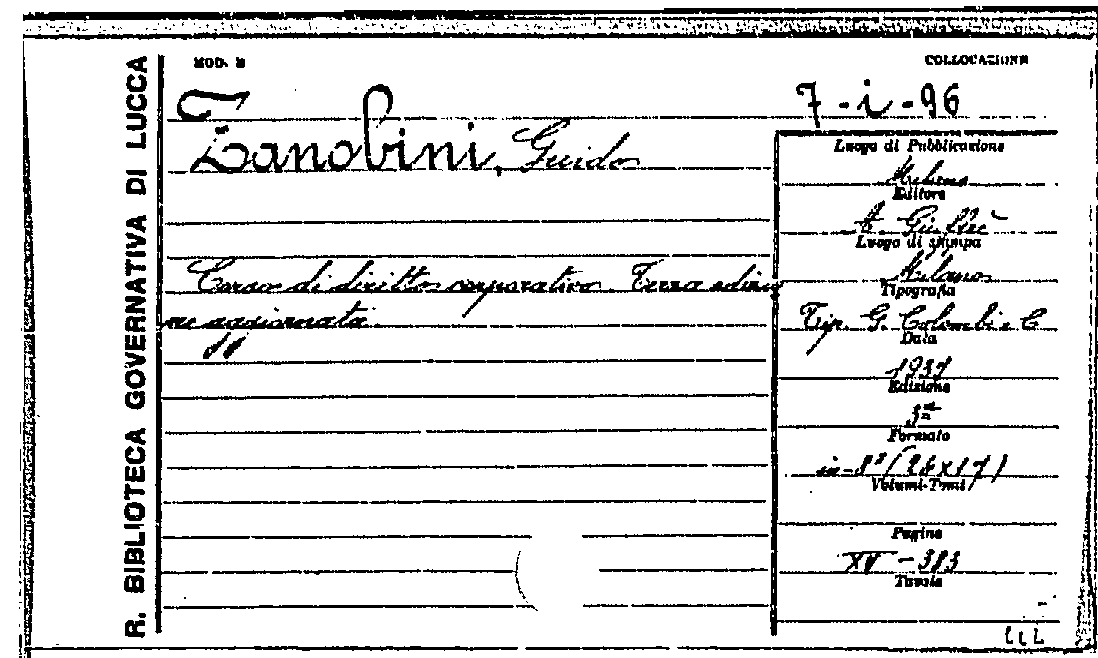 R. BIBLIOTECA GOVERNATIVA DI LUCCA
MOD. B
COLLOCAZIONE
7-i-96
Zanobini, Guido
Corso di diritto corporativo. Terza edizio
ne aggiornata.
Luogo di Pubblicazione
Milano
Editore
A. Giuffrè
Luogo di stampa
Milano
Tipografia
Tip. G. Colombi e C
Data
1937
Edizione
3ª
Formato
in-8° (26x17)
Volumi-Tomi
Pagine
XV-383
Tavole